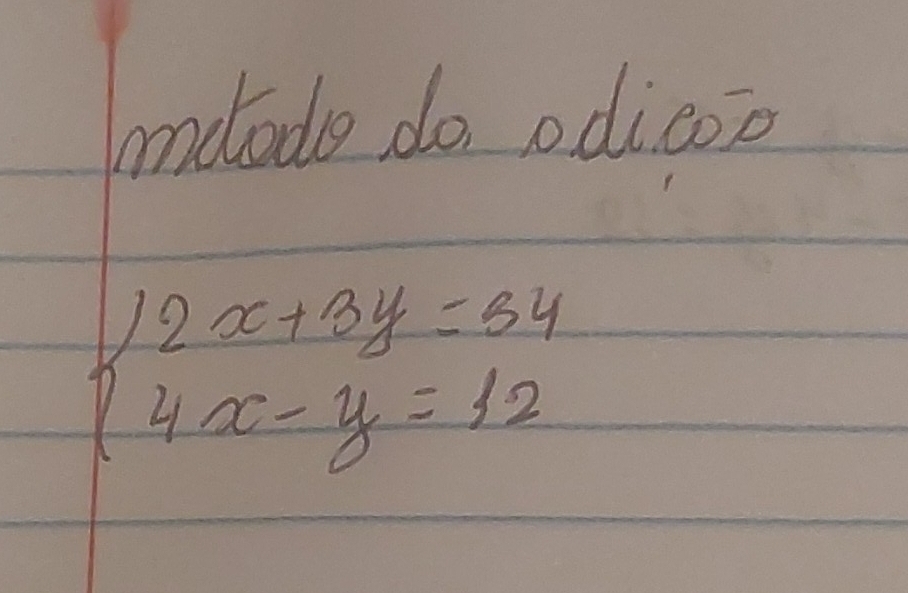 metodo da adição
{ 2x + 3y = 34
4x - y = 12